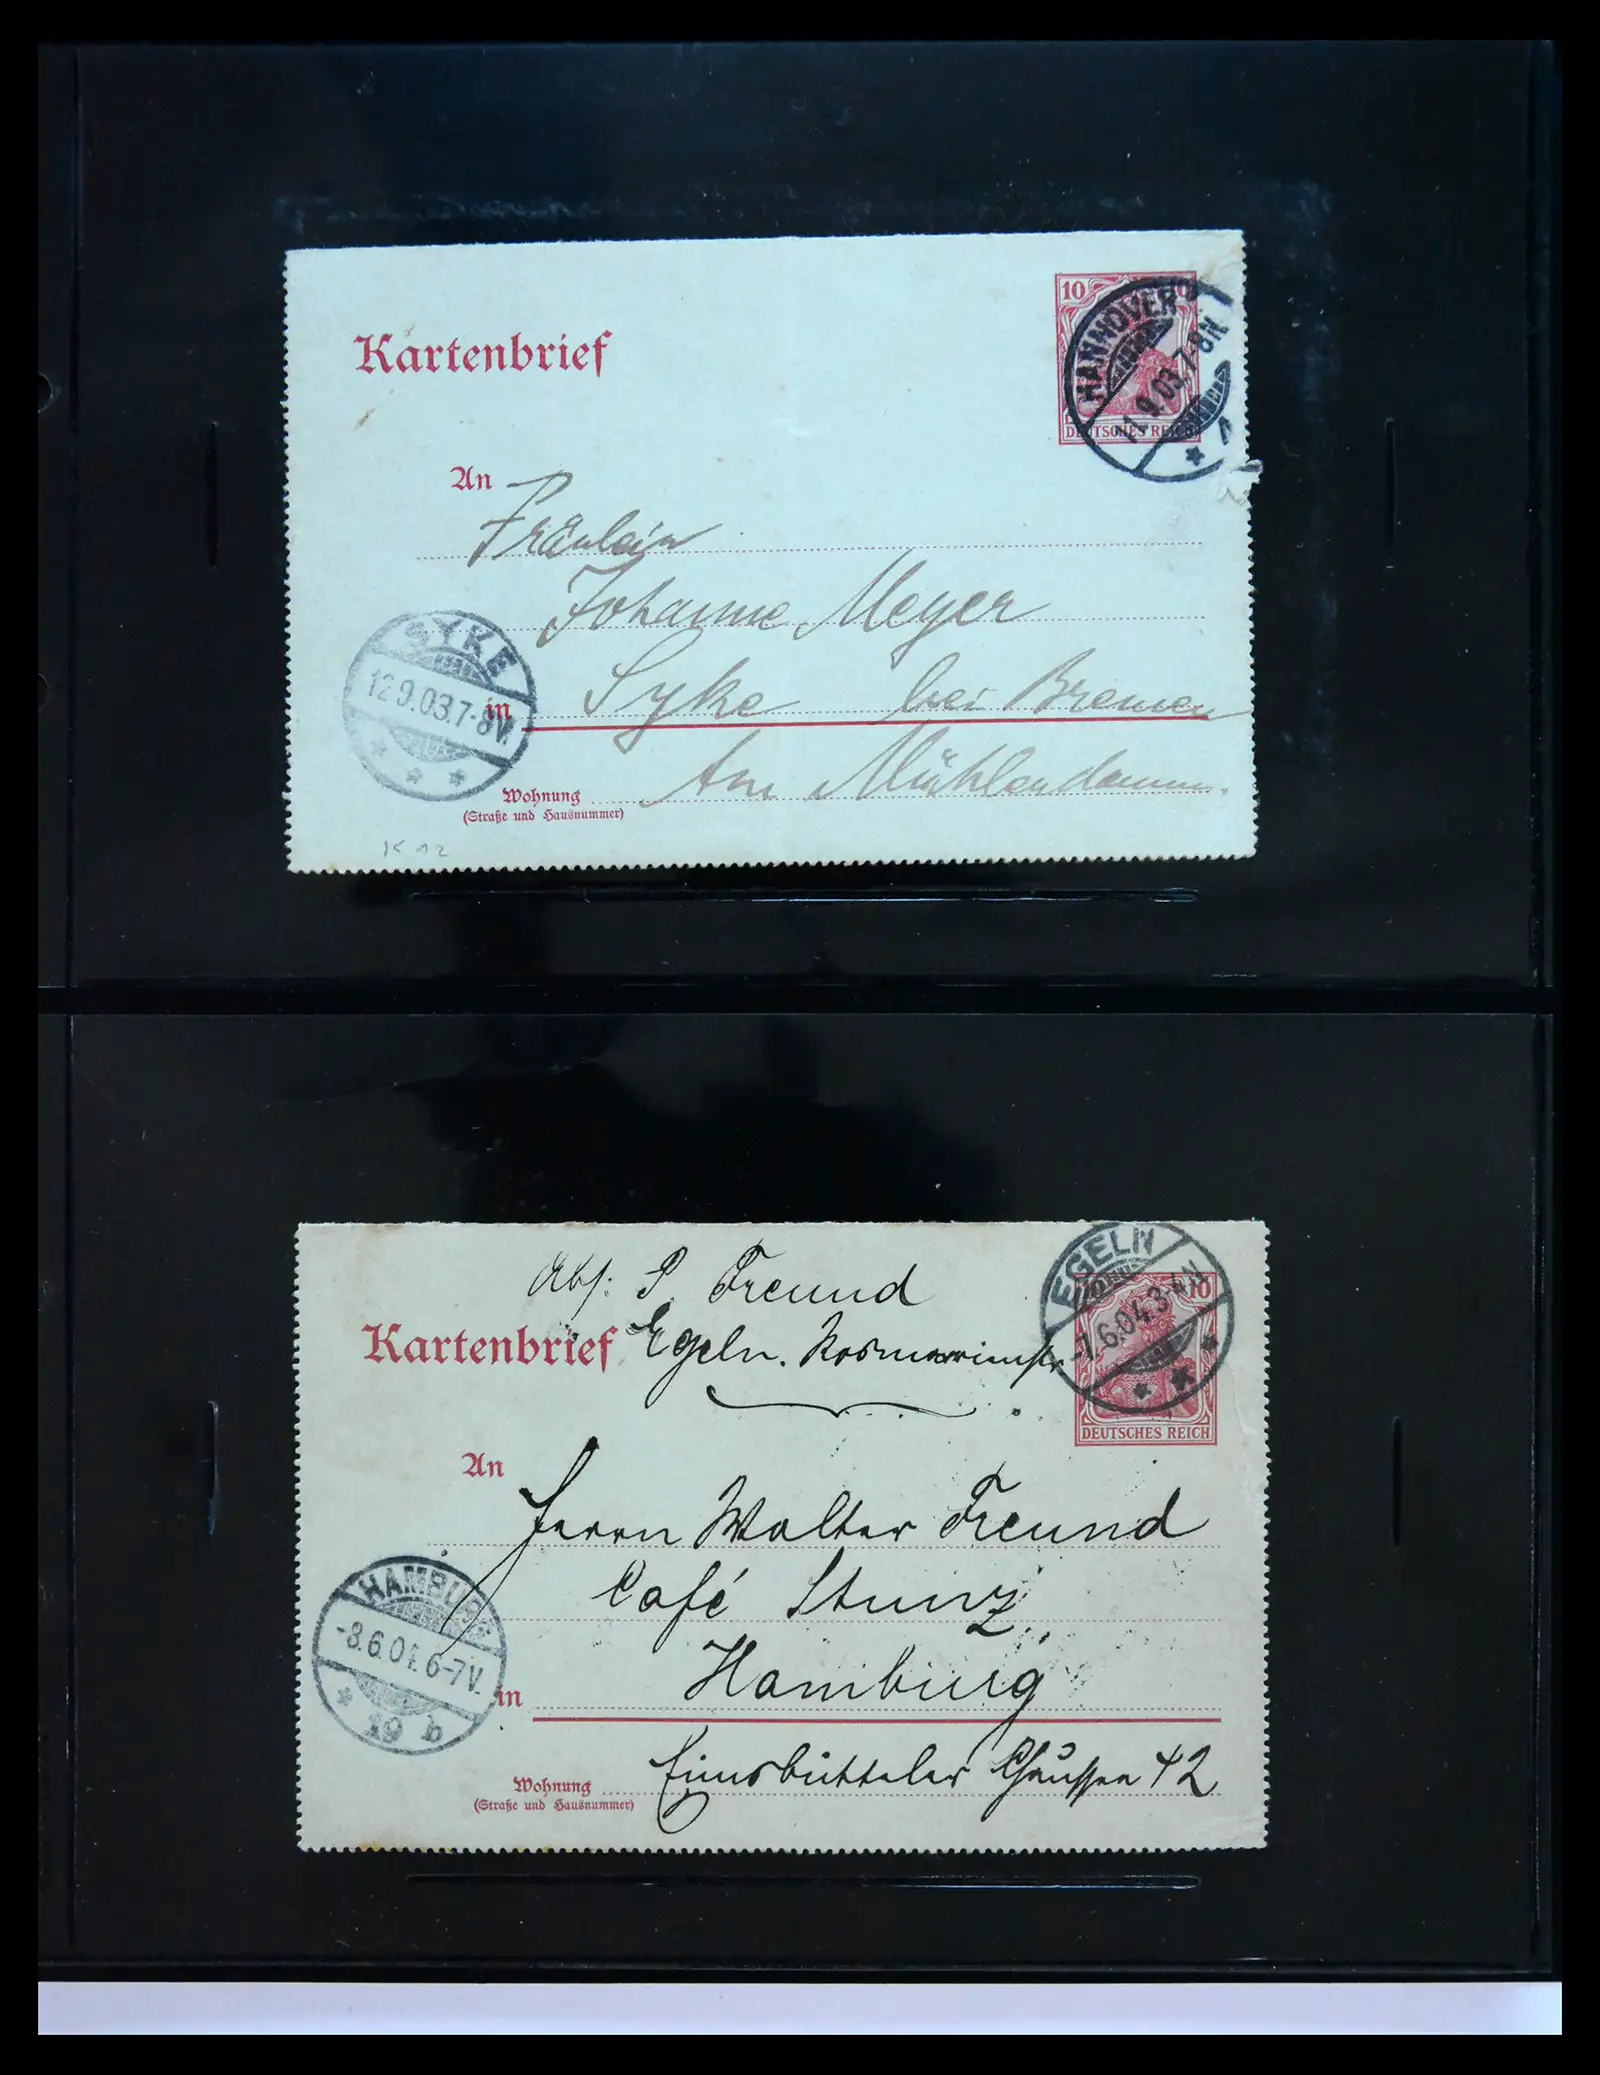 10
HANNOVER
11.9.03.7-8N
DEUTSCHES REICH
Kartenbrief
An
Fräulein
Johanne Meyer
SYKE
12 9.03.7-8V.
in Syke bei Bremen
Wohnung Am Mühlendamm.
(Straße und Hausnummer)
K 12
Abs: P. Freund
EGELN
10
-7.6.04.3-4N
Kartenbrief Egeln. Rosmarienstr
DEUTSCHES REICH
An
Herrn Walter Freund
Café Stunz
HAMBURG
-8.6.04.6-7V.
19 b
in Hamburg
Wohnung Eimsbütteler Chaussee 42
(Straße und Hausnummer)